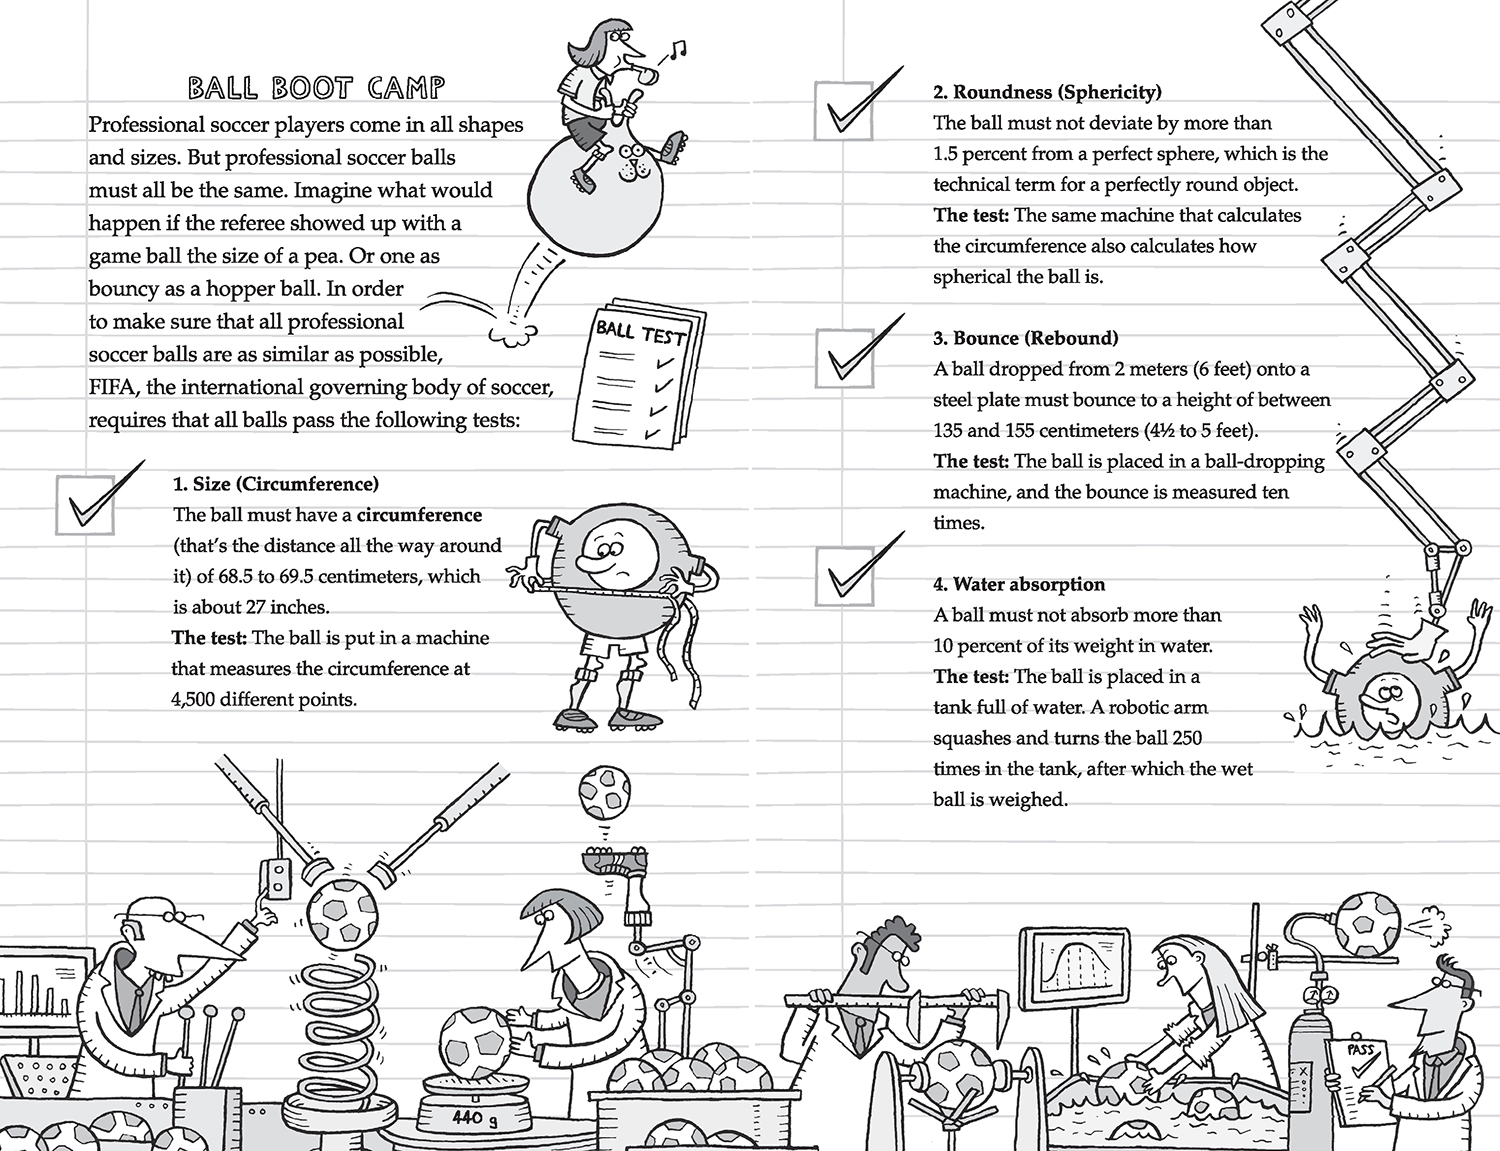 BALL BOOT CAMP
Professional soccer players come in all shapes
and sizes. But professional soccer balls
must all be the same. Imagine what would
happen if the referee showed up with a
game ball the size of a pea. Or one as
bouncy as a hopper ball. In order
to make sure that all professional
soccer balls are as similar as possible,
FIFA, the international governing body of soccer,
requires that all balls pass the following tests:
BALL TEST
1. Size (Circumference)
The ball must have a circumference
(that’s the distance all the way around
it) of 68.5 to 69.5 centimeters, which
is about 27 inches.
The test: The ball is put in a machine
that measures the circumference at
4,500 different points.
440 g
2. Roundness (Sphericity)
The ball must not deviate by more than
1.5 percent from a perfect sphere, which is the
technical term for a perfectly round object.
The test: The same machine that calculates
the circumference also calculates how
spherical the ball is.
3. Bounce (Rebound)
A ball dropped from 2 meters (6 feet) onto a
steel plate must bounce to a height of between
135 and 155 centimeters (4½ to 5 feet).
The test: The ball is placed in a ball-dropping
machine, and the bounce is measured ten
times.
4. Water absorption
A ball must not absorb more than
10 percent of its weight in water.
The test: The ball is placed in a
tank full of water. A robotic arm
squashes and turns the ball 250
times in the tank, after which the wet
ball is weighed.
PASS